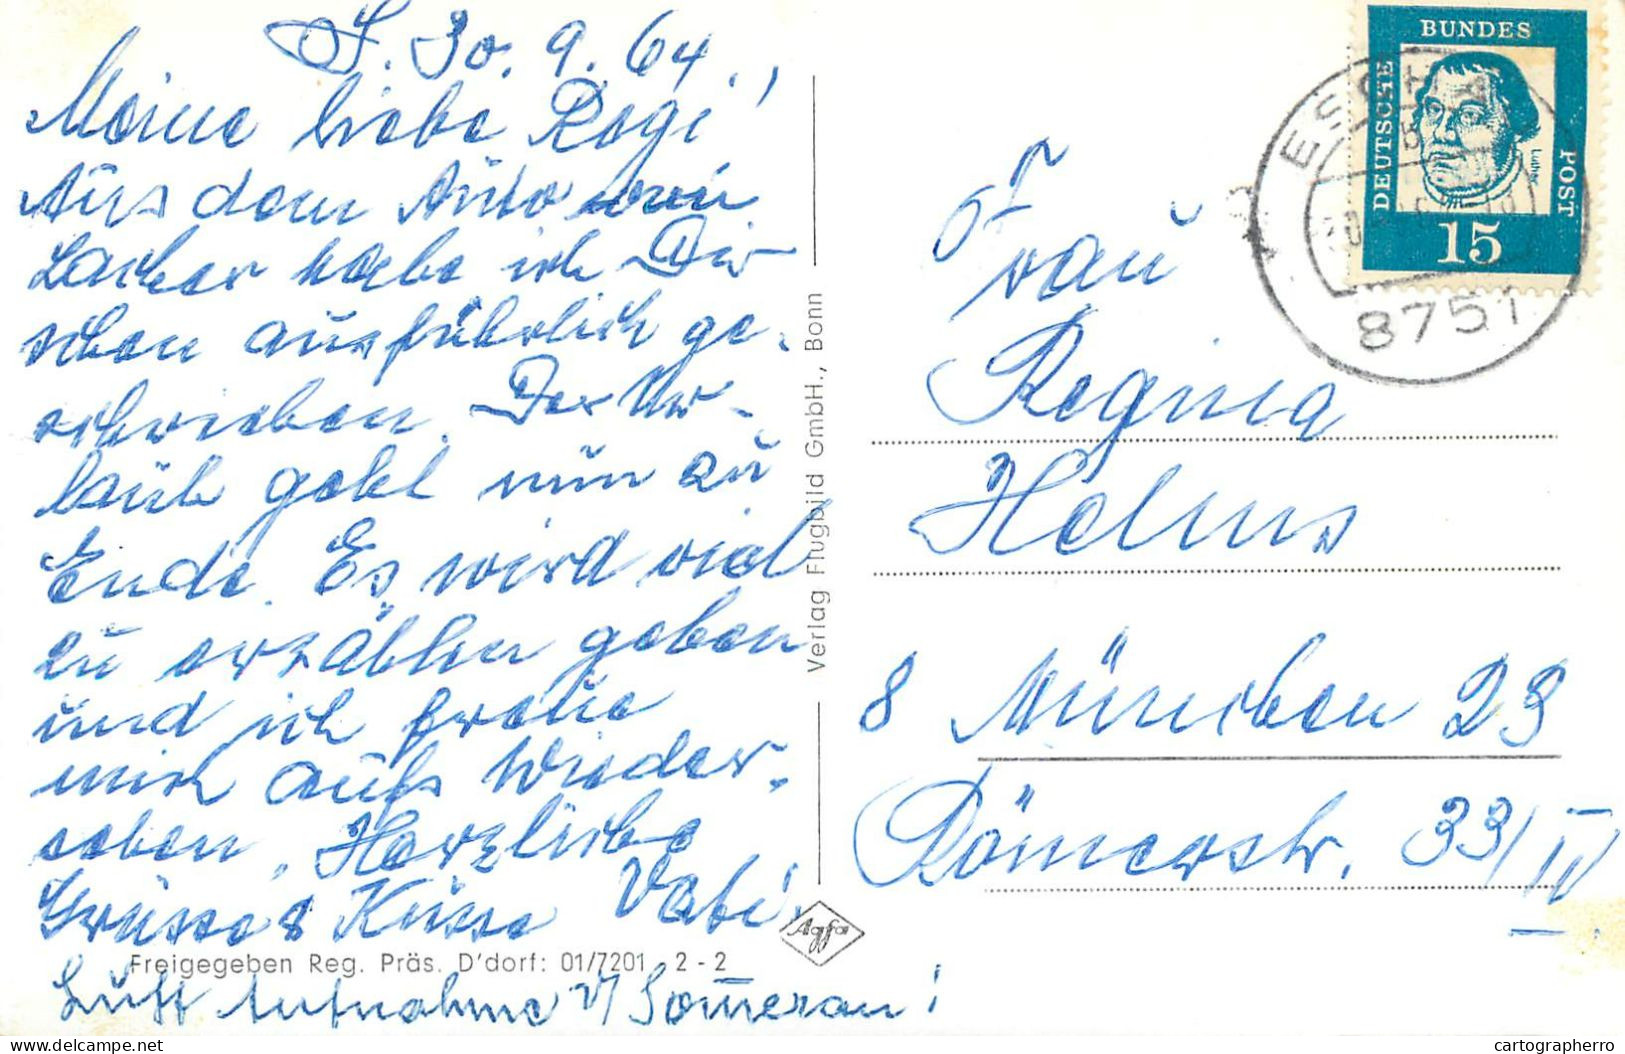 S. 30. 9. 64.
Meine liebe Regi!
Aus dem Auto von
habe ich Dir
schon ausführlich ge-
schrieben. Der Ur-
laub geht nun zu
Ende. Es wird viel
zu erzählen geben
und ich freue
mich aufs Wieder-
sehen. Herzliche
Grüsse & Küsse Vati
Freigegeben Reg. Präs. D'dorf: 01/7201 2-2
Luft Aufnahme v/ Sommerau!
Verlag Flugbild GmbH., Bonn
Agfa
DEUTSCHE BUNDES POST
Luther
15
8751
Frau
Regina
Helms
8 München 23
Römerstr. 33/IV
https://www.delcampe.net
cartographerro